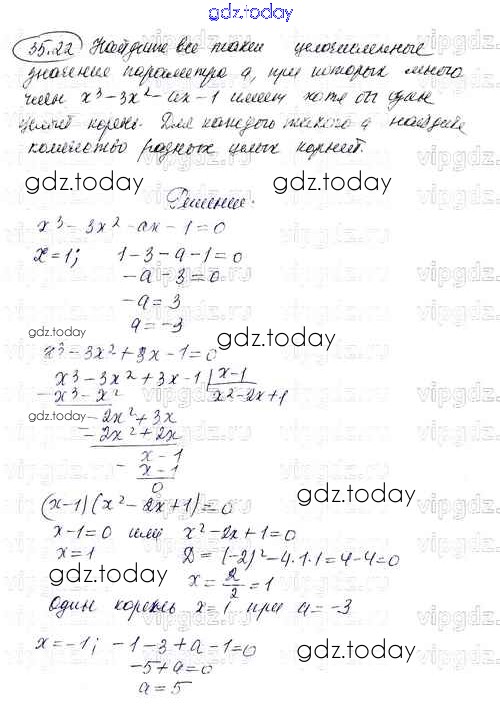 gdz.today
35.22 Найдите все такие целочисленные
значения параметра a, при которых много
член x³-3x²-ax-1 имеет хотя бы один
целый корень. Для каждого такого a найдите
количество разных целых корней.
gdz.today gdz.today gdz.today
Решение.
x³-3x²-ax-1=0
x=1; 1-3-a-1=0
-a-3=0
-a=3
a=-3
gdz.today gdz.today
x³-3x²+3x-1=0
x³-3x²+3x-1 | x-1
- x³-x² x²-2x+1
gdz.today -2x²+3x
- -2x²+2x
x-1
- x-1
0
gdz.today
(x-1)(x²-2x+1)=0
x-1=0 или x²-2x+1=0
x=1 D=(-2)²-4·1·1=4-4=0
gdz.today x=2/2=1 gdz.today
Один корень x=1 при a=-3
x=-1; -1-3+a-1=0
-5+a=0
a=5